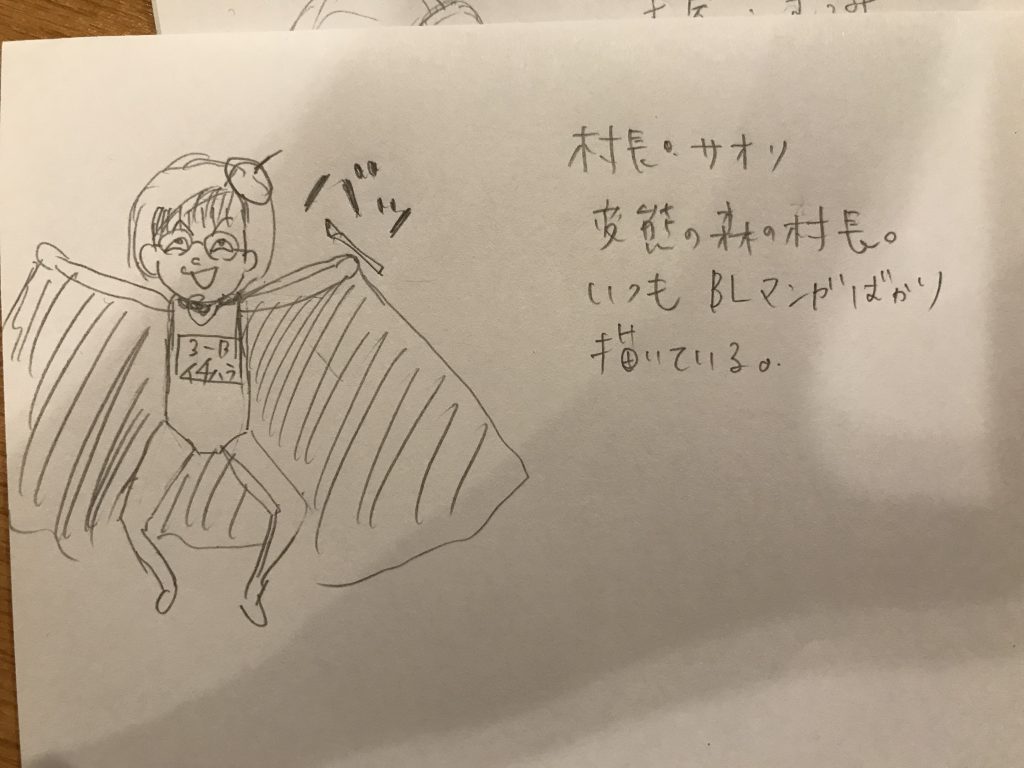 バッ
村長・サオリ
変態の森の村長。
いつもBLマンガばかり
描いている。
3-B